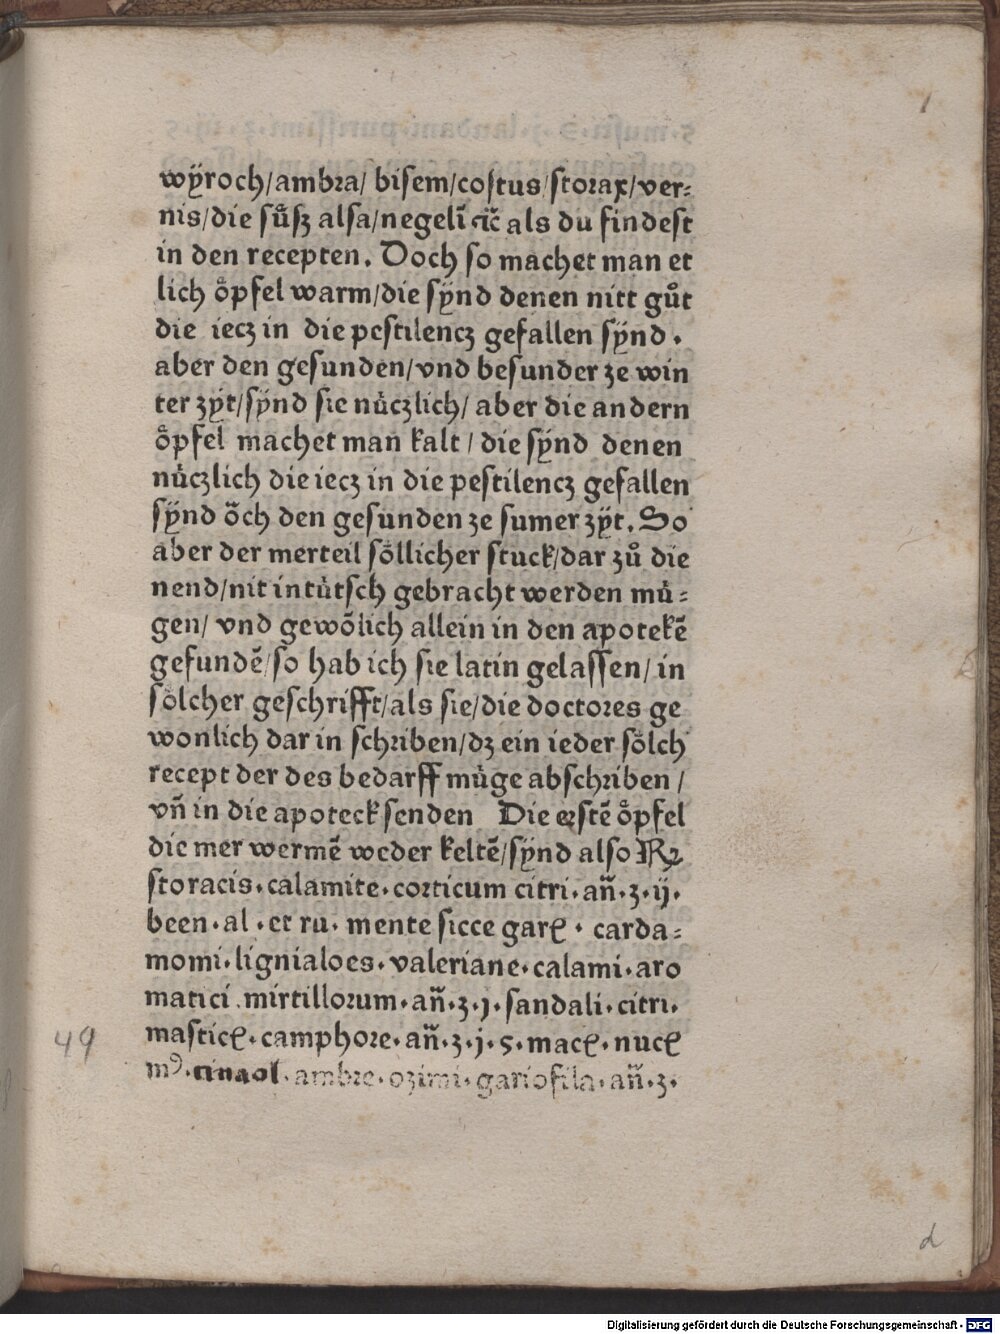 1
wÿroch/ambra/ bisem/costus/storax/ver-
nis/die sůͤsz alsa/negelī ⁊c̄ als du findest
in den recepten. Doch so machet man et
lich oͤpfel warm/die sÿnd denen nitt gůt
die iecz in die pestilencz gefallen sÿnd.
aber den gesunden/vnd besunder ze win
ter zÿt/sÿnd sie nüczlich/ aber die andern
oͤpfel machet man kalt/ die sÿnd denen
nüczlich die iecz in die pestilencz gefallen
sÿnd oͮch den gesunden ze sumer zÿt. So
aber der merteil soͤllicher stuck/dar zů die
nend/nit in tütsch gebracht werden mü-
gen/ vnd gewōlich allein in den apotekē
gefundē/so hab ich sie latin gelassen/ in
soͤlcher geschrifft/als sie/die doctores ge
wonlich dar in schriben/dz ein ieder soͤlch
recept der des bedarff müge abschriben/
vn̄ in die apoteck senden Die erstē oͤpfel
die mer wermē weder keltē/sÿnd also ℞
storacis·calamite·corticum citri·an̄·ʒ·ij·
been·al·et ru·mente sicce garꝭ·carda-
momi·lignialoes·valeriane·calami·aro
matici·mirtillorum·an̄·ʒ·j·sandali·citri·
masticꝭ·camphore·an̄·ʒ·j·s·macꝭ·nucꝭ
mꝰ·cinaol·ambre·ozimi·gariofila·an̄·ʒ·
49
d
Digitalisierung gefördert durch die Deutsche Forschungsgemeinschaft - DFG